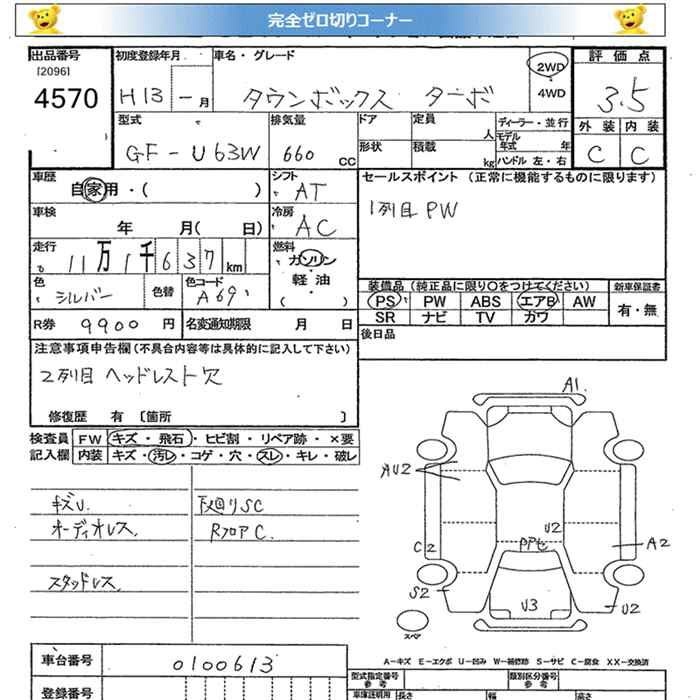 完全ゼロ切りコーナー
出品番号 初度登録年月 車名・グレード 2WD 評価点
[2096]
4570 H13 - 月 タウンボックス ターボ 4WD 3.5
型式 排気量 ドア 定員 ディーラー・並行 外装 内装
GF-U63W 660 CC 形状 積載 人 kg モデル年式 年 ハンドル 左・右 C C
車歴 自家用・( ) シフト AT セールスポイント (正常に機能するものに限ります)
車検 年 月( 日) 冷房 AC 1列目 PW
走行 11万1千637km 燃料 ガソリン 軽油 ( )
色 シルバー 色替 色コード A69 装備品 (純正品に限り○をつけてください) 新車保証書
PS PW ABS エアB AW 有・無
R券 9900 円 名変通知期限 月 日 SR ナビ TV カワ
後日品
注意事項申告欄 (不具合内容等は具体的に記入して下さい)
2列目 ヘッドレスト欠
修復歴 有 〔箇所 〕
検査員 FW キズ・飛石・ヒビ割・リペア跡・×要
記入欄 内装 キズ・汚レ・コゲ・穴・スレ・キレ・破レ
キズU. 下廻りSC
オーディオレス. RフロアC.
スタッドレス
A1.
AU2
U2
PPセ
C2 A2
S2 U3 U2
スペア
A-キズ E-エクボ U-凹み W-補修跡 S-サビ C-腐食 XX-交換済
車台番号 0100613 型式指定番号 参考 類別区分番号 参考
登録番号 車庫証明用 長さ 幅 高さ